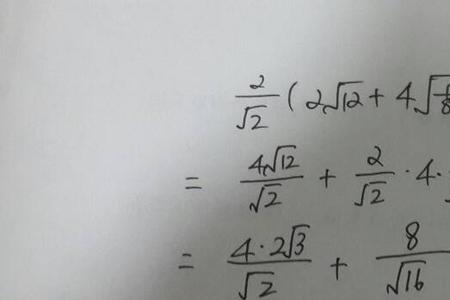 2/√2 (2√12 + 4√1/8
= 4√12/√2 + 2/√2 · 4 ·
= 4 · 2√3/√2 + 8/√16